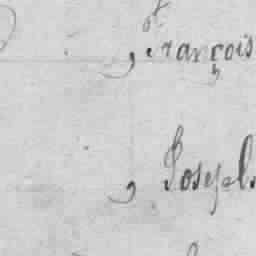 , François
, Joseph